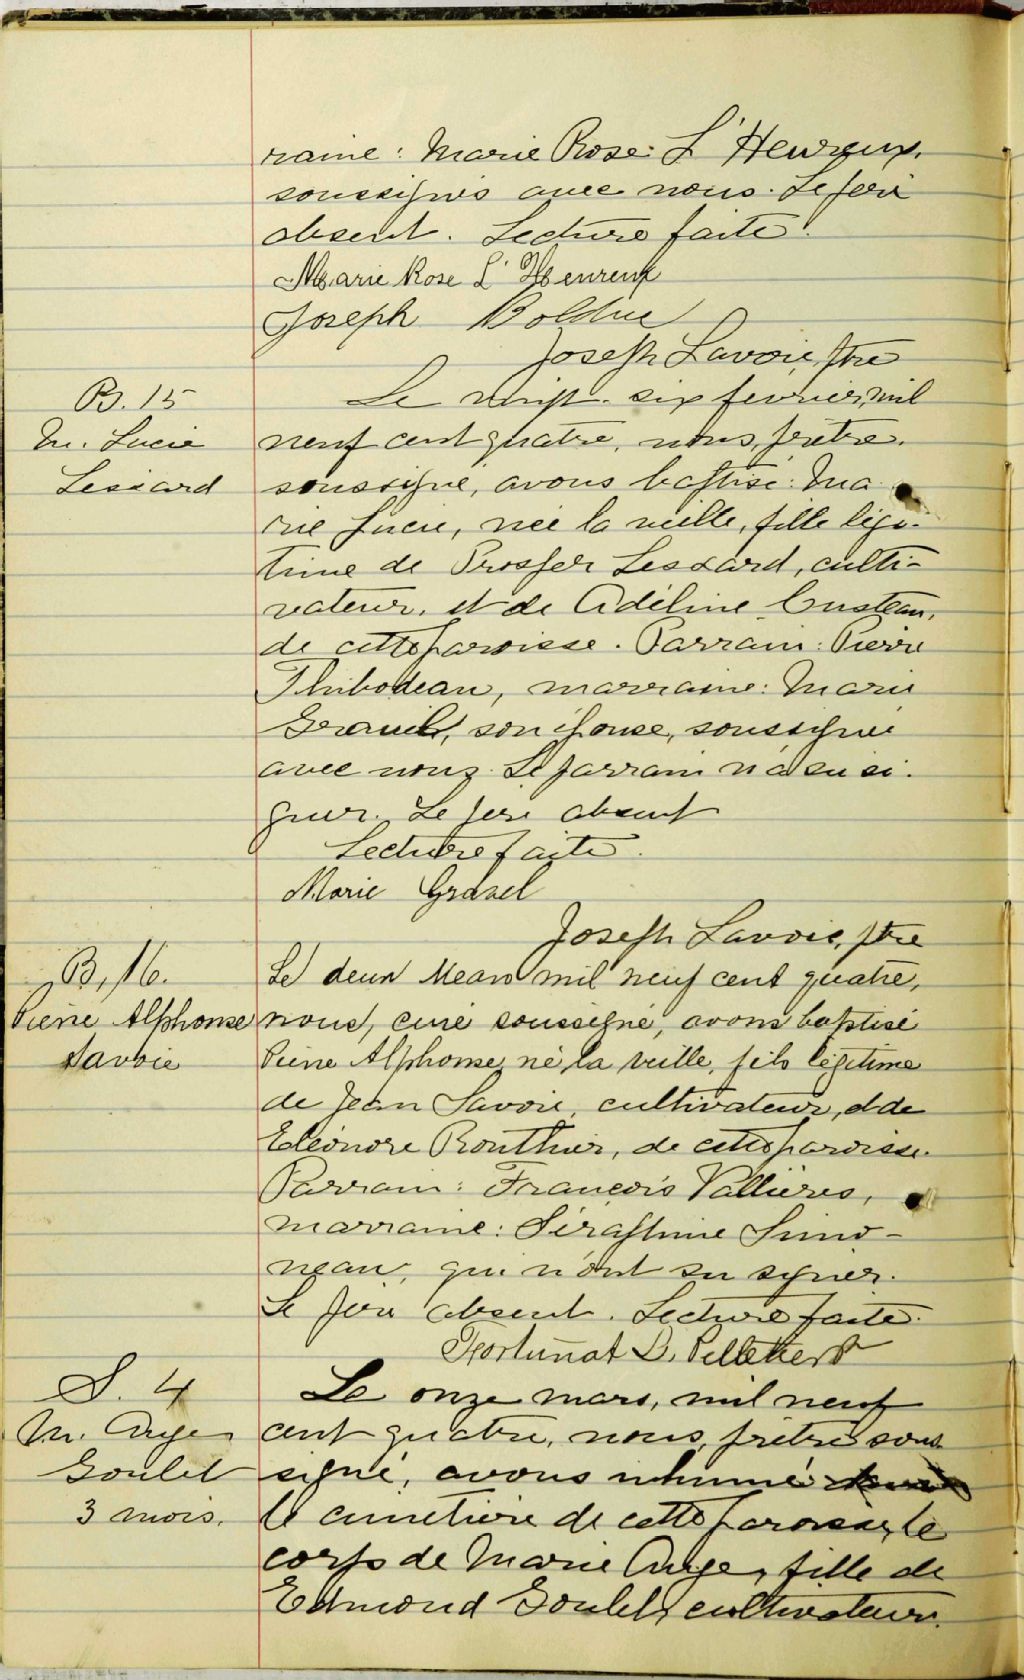 raine: Marie Rose L'Heureux,
soussignés avec nous. Le père
absent. Lecture faite.
Marie Rose L'Heureux
Joseph Bolduc
Joseph Lavoie, ptre
B. 15
M. Lucie
Lessard
Le vingt-six février, mil
neuf cent quatre, nous, prêtre
soussigné, avons baptisé: Ma
rie Lucie, née la veille, fille légi-
time de Prosper Lessard, culti-
vateur, et de Adéline Custeau,
de cette paroisse. Parrain: Pierre
Thibodeau, marraine: Marie
Gravel, son épouse, soussignée
avec nous. Le parrain n'a su si-
gner. Le père absent
Lecture faite.
Marie Gravel
Joseph Lavoie, ptre
B. 16.
Pierre Alphonse
Savoie
Le deux Mars mil neuf cent quatre,
nous, curé soussigné, avons baptisé
Pierre Alphonse, né la veille, fils légitime
de Jean Savoie, cultivateur, et de
Eléonore Routhier, de cette paroisse.
Parrain: François Vallières,
marraine: Séraphine Simo-
neau, qui n'ont su signer.
Le père absent. Lecture faite.
Fortunat D. Pelletier Ptr
S. 4
M. Ange
Goulet
3 mois.
Le onze mars, mil neuf
cent quatre, nous, prêtre sous-
signé, avons inhumé dans
le cimetière de cette paroisse, le
corps de Marie Ange, fille de
Edmond Goulet, cultivateur,